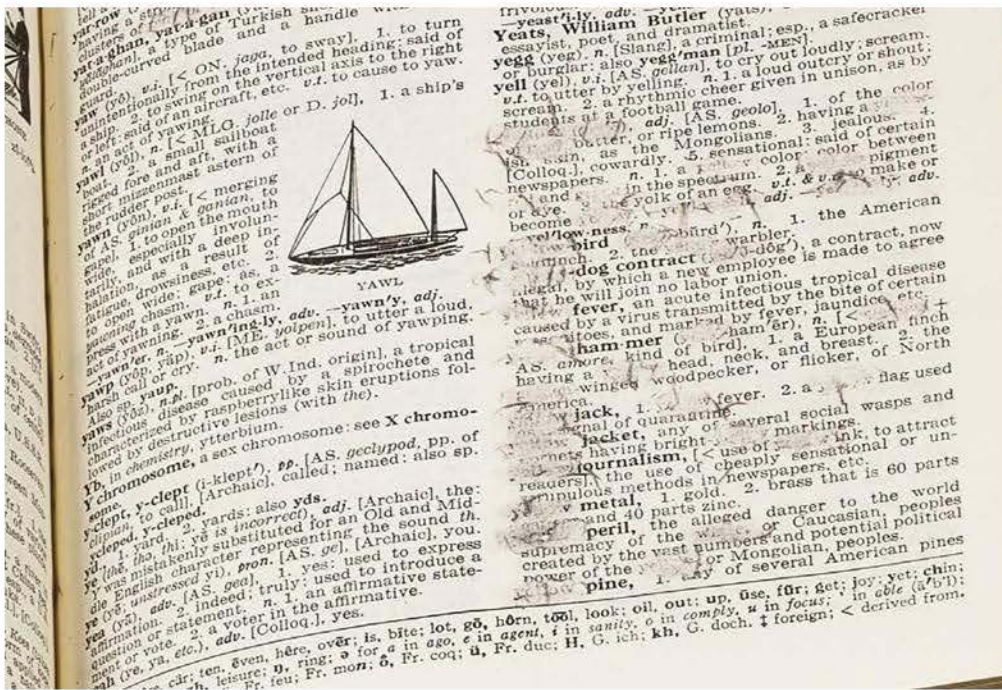 tell a
yar·row
having a
clusters of
yat·a·ghan, yat·a·gan
yātāghan], a type of Turkish
double-curved blade and a handle with
guard.
yaw (yô), v.i. [< ON. jaga, to sway], 1. to turn
unintentionally from the intended heading: said of
a ship. 2. to swing on the vertical axis to the right
or left: said of an aircraft, etc. v.t. to cause to yaw.
n. an act of yawing.
yawl (yôl), n. [< MLG. jolle or D. jol], 1. a ship's
boat. 2. a small sailboat
rigged fore and aft, with a
short mizzenmast astern of
the rudder post.
yawn (yôn), v.i. [< merging
of AS. ginian & ganian, to
gape], 1. to open the mouth
wide, especially involun-
tarily, and with a deep in-
halation, as a result of
fatigue, drowsiness, etc. 2.
to open wide; gape: as, a
yawning chasm. v.t. to ex-
press with a yawn. n. 1. an
act of yawning. 2. a chasm.
—yawn'er, n. —yawn'ing·ly, adv. —yawn'y, adj.
YAWL
yawp (yôp, yäp), v.i. [ME. yolpen], to utter a loud,
harsh call or cry. n. the act or sound of yawping.
Also sp. yaup.
yaws (yôz), n.pl. [prob. of W. Ind. origin], a tropical
infectious disease caused by a spirochete and
characterized by raspberrylike skin eruptions fol-
lowed by destructive lesions (with the).
Yb, in chemistry, ytterbium.
Y chromosome, a sex chromosome: see X chromo-
some.
y-clept, y-clept (i-klept'), pp. [AS. geclypod, pp. of
clipian, to call], [Archaic], called; named: also sp.
ycleped, y-cleped.
yd., 1. yard. 2. yards: also yds.
ye (thē, thə, thi; yē is incorrect), adj. [Archaic], the:
Y was mistakenly substituted for an Old and Mid-
dle English character representing the sound th.
ye (yē; unstressed yi), pron. [AS. ge], [Archaic], you.
yea (yā), adv. [AS. gea], 1. yes: used to express
affirmation. 2. indeed; truly: used to introduce a
question or statement. n. 1. an affirmative state-
ment or vote. 2. a voter in the affirmative.
yeah (ye, ya, etc.), adv. [Colloq.], yes.
frivolous.
—yeast'i·ly, adv.
Yeats, William Butler (yāts),
essayist, poet, and dramatist.
yegg (yeg), n. [Slang], a criminal; esp., a safecracker
or burglar: also yegg'man [pl. -MEN].
yell (yel), v.i. [AS. gellan], to cry out loudly; scream.
v.t. to utter by yelling. n. 1. a loud outcry or shout;
scream. 2. a rhythmic cheer given in unison, as by
students at a football game.
adj. [AS. geolo], 1. of the color
butter, or ripe lemons. 2. having a
ish skin, as the Mongolians. 3. jealous. 4.
[Colloq.], cowardly. 5. sensational: said of certain
newspapers. n. 1. a color between
and in the spectrum. 2. a pigment
or dye. 3. the yolk of an egg. v.t. & v.i. to make or
become adj. adv.
yel'low·ness, n.
bird n. 1. the American
2. the warbler.
-dog contract a contract, now
illegal, by which a new employee is made to agree
that he will join no labor union.
fever, an acute infectious tropical disease
caused by a virus transmitted by the bite of certain
and marked by fever, jaundice, etc.
ham·mer n. [< +
AS. amore, kind of bird], 1. a European finch
having a head, neck, and breast. 2. the
winged woodpecker, or flicker, of North
America.
jack, 1. fever. 2. a flag used
signal of quarantine.
jacket, any of several social wasps and
hornets having bright markings.
journalism, [< use of ink, to attract
readers], the use of cheaply sensational or un-
scrupulous methods in newspapers, etc.
metal, 1. gold. 2. brass that is 60 parts
and 40 parts zinc.
peril, the alleged danger to the world
supremacy of the or Caucasian, peoples
created by the vast numbers and potential political
power of the or Mongolian, peoples.
pine, 1. any of several American pines
cär; ten, ēven, hêre, ovẽr; is, bīte; lot, gō, hôrn, tōōl, look; oil, out; up, ūse, fũr; get; joy; yet; chin;
leisure; ŋ, ring; ə for a in ago, e in agent, i in sanity, o in comply, u in focus; ' in able (ā'b'l);
Fr. feu; Fr. mon; ô, Fr. coq; ü, Fr. duc; H, G. ich; kh, G. doch. ‡ foreign; < derived from.